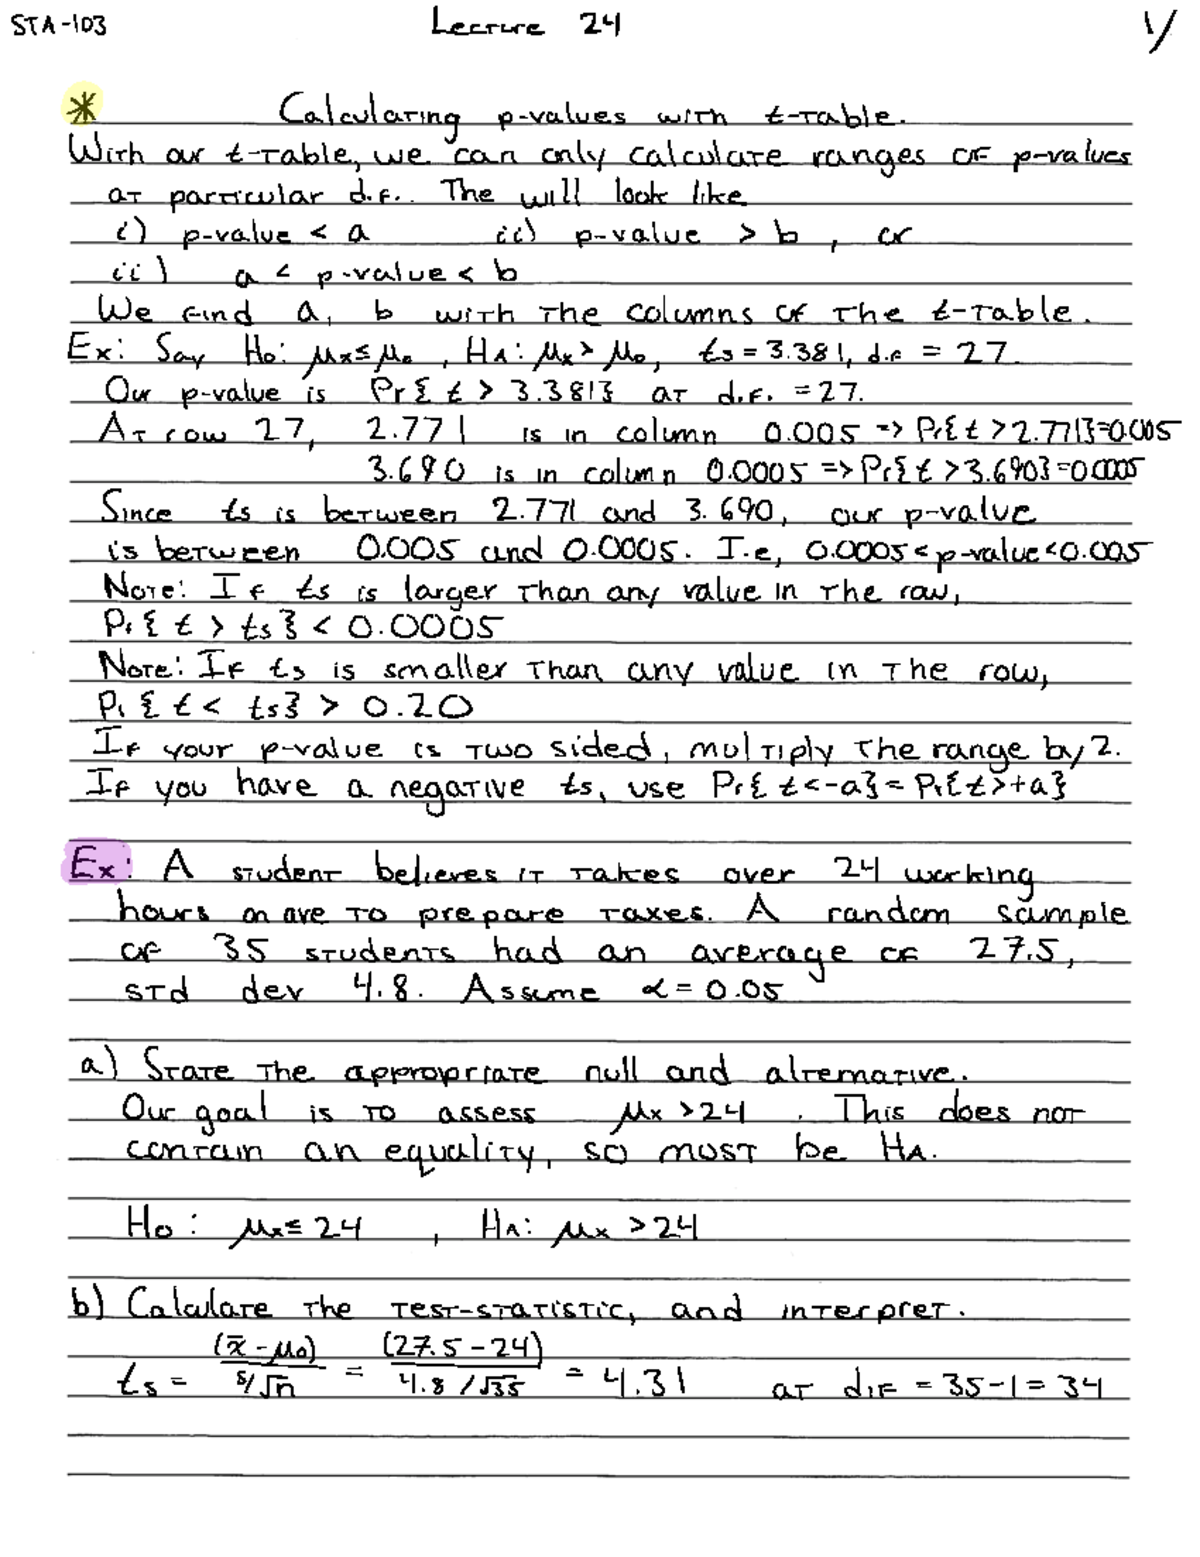 STA-103 Lecture 24 1/
* Calculating p-values with t-table.
With our t-table, we can only calculate ranges of p-values
at particular d.f.. The will look like
i) p-value < a ii) p-value > b, or
iii) a < p-value < b
We find a, b with the columns of the t-table.
Ex: Say H₀: μₓ ≤ μ₀, Hₐ: μₓ > μ₀, ts = 3.381, d.f = 27.
Our p-value is Pr{t > 3.381} at d.f. = 27.
At row 27, 2.771 is in column 0.005 => Pr{t > 2.771} = 0.005
3.690 is in column 0.0005 => Pr{t > 3.690} = 0.0005
Since ts is between 2.771 and 3.690, our p-value
is between 0.005 and 0.0005. I.e, 0.0005 < p-value < 0.005
Note: If ts is larger than any value in the row,
Pr{t > ts} < 0.0005
Note: If ts is smaller than any value in the row,
Pr{t < ts} > 0.20
If your p-value is two sided, multiply the range by 2.
If you have a negative ts, use Pr{t < -a} = Pr{t > +a}
Ex: A student believes it takes over 24 working
hours on ave to prepare taxes. A random sample
of 35 students had an average of 27.5,
std dev 4.8. Assume α = 0.05
a) State the appropriate null and alternative.
Our goal is to assess μₓ > 24. This does not
contain an equality, so must be Hₐ.
H₀: μₓ ≤ 24, Hₐ: μₓ > 24
b) Calculate the test-statistic, and interpret.
ts = (x̄ - μ₀) / s/√n = (27.5 - 24) / 4.8/√35 = 4.31 at d.f = 35-1 = 34